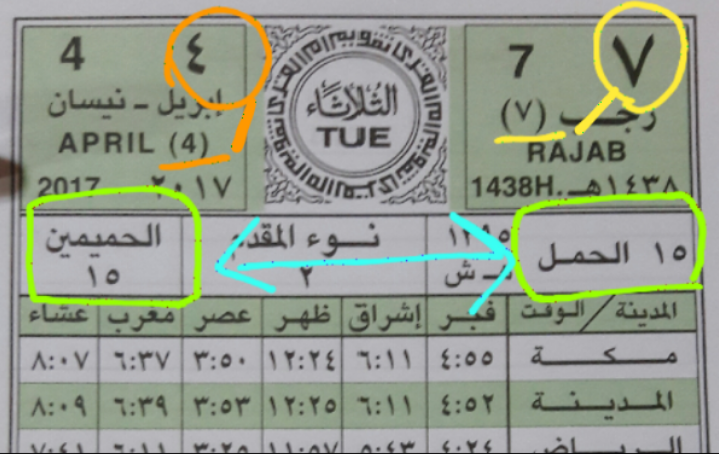 ٧ 7
رجب (٧)
RAJAB
١٤٣٨هـ 1438H.
الثلاثاء
TUE
٤ 4
إبريل ـ نيسان
APRIL (4)
٢٠١٧ 2017
١٥ الحمل
ش
نوء المقدم
٢
الحميمين
١٥
المدينة / الوقت فجر إشراق ظهر عصر مغرب عشاء
مكة ٤:٥٥ ٦:١١ ١٢:٢٤ ٣:٥٠ ٦:٣٧ ٨:٠٧
المدينة ٤:٥٢ ٦:١١ ١٢:٢٥ ٣:٥٣ ٦:٣٩ ٨:٠٩
الرياض ٤:٢٤ ٥:٤٣ ١١:٥٧ ٣:٢٥ ٦:١١ ٧:٤١